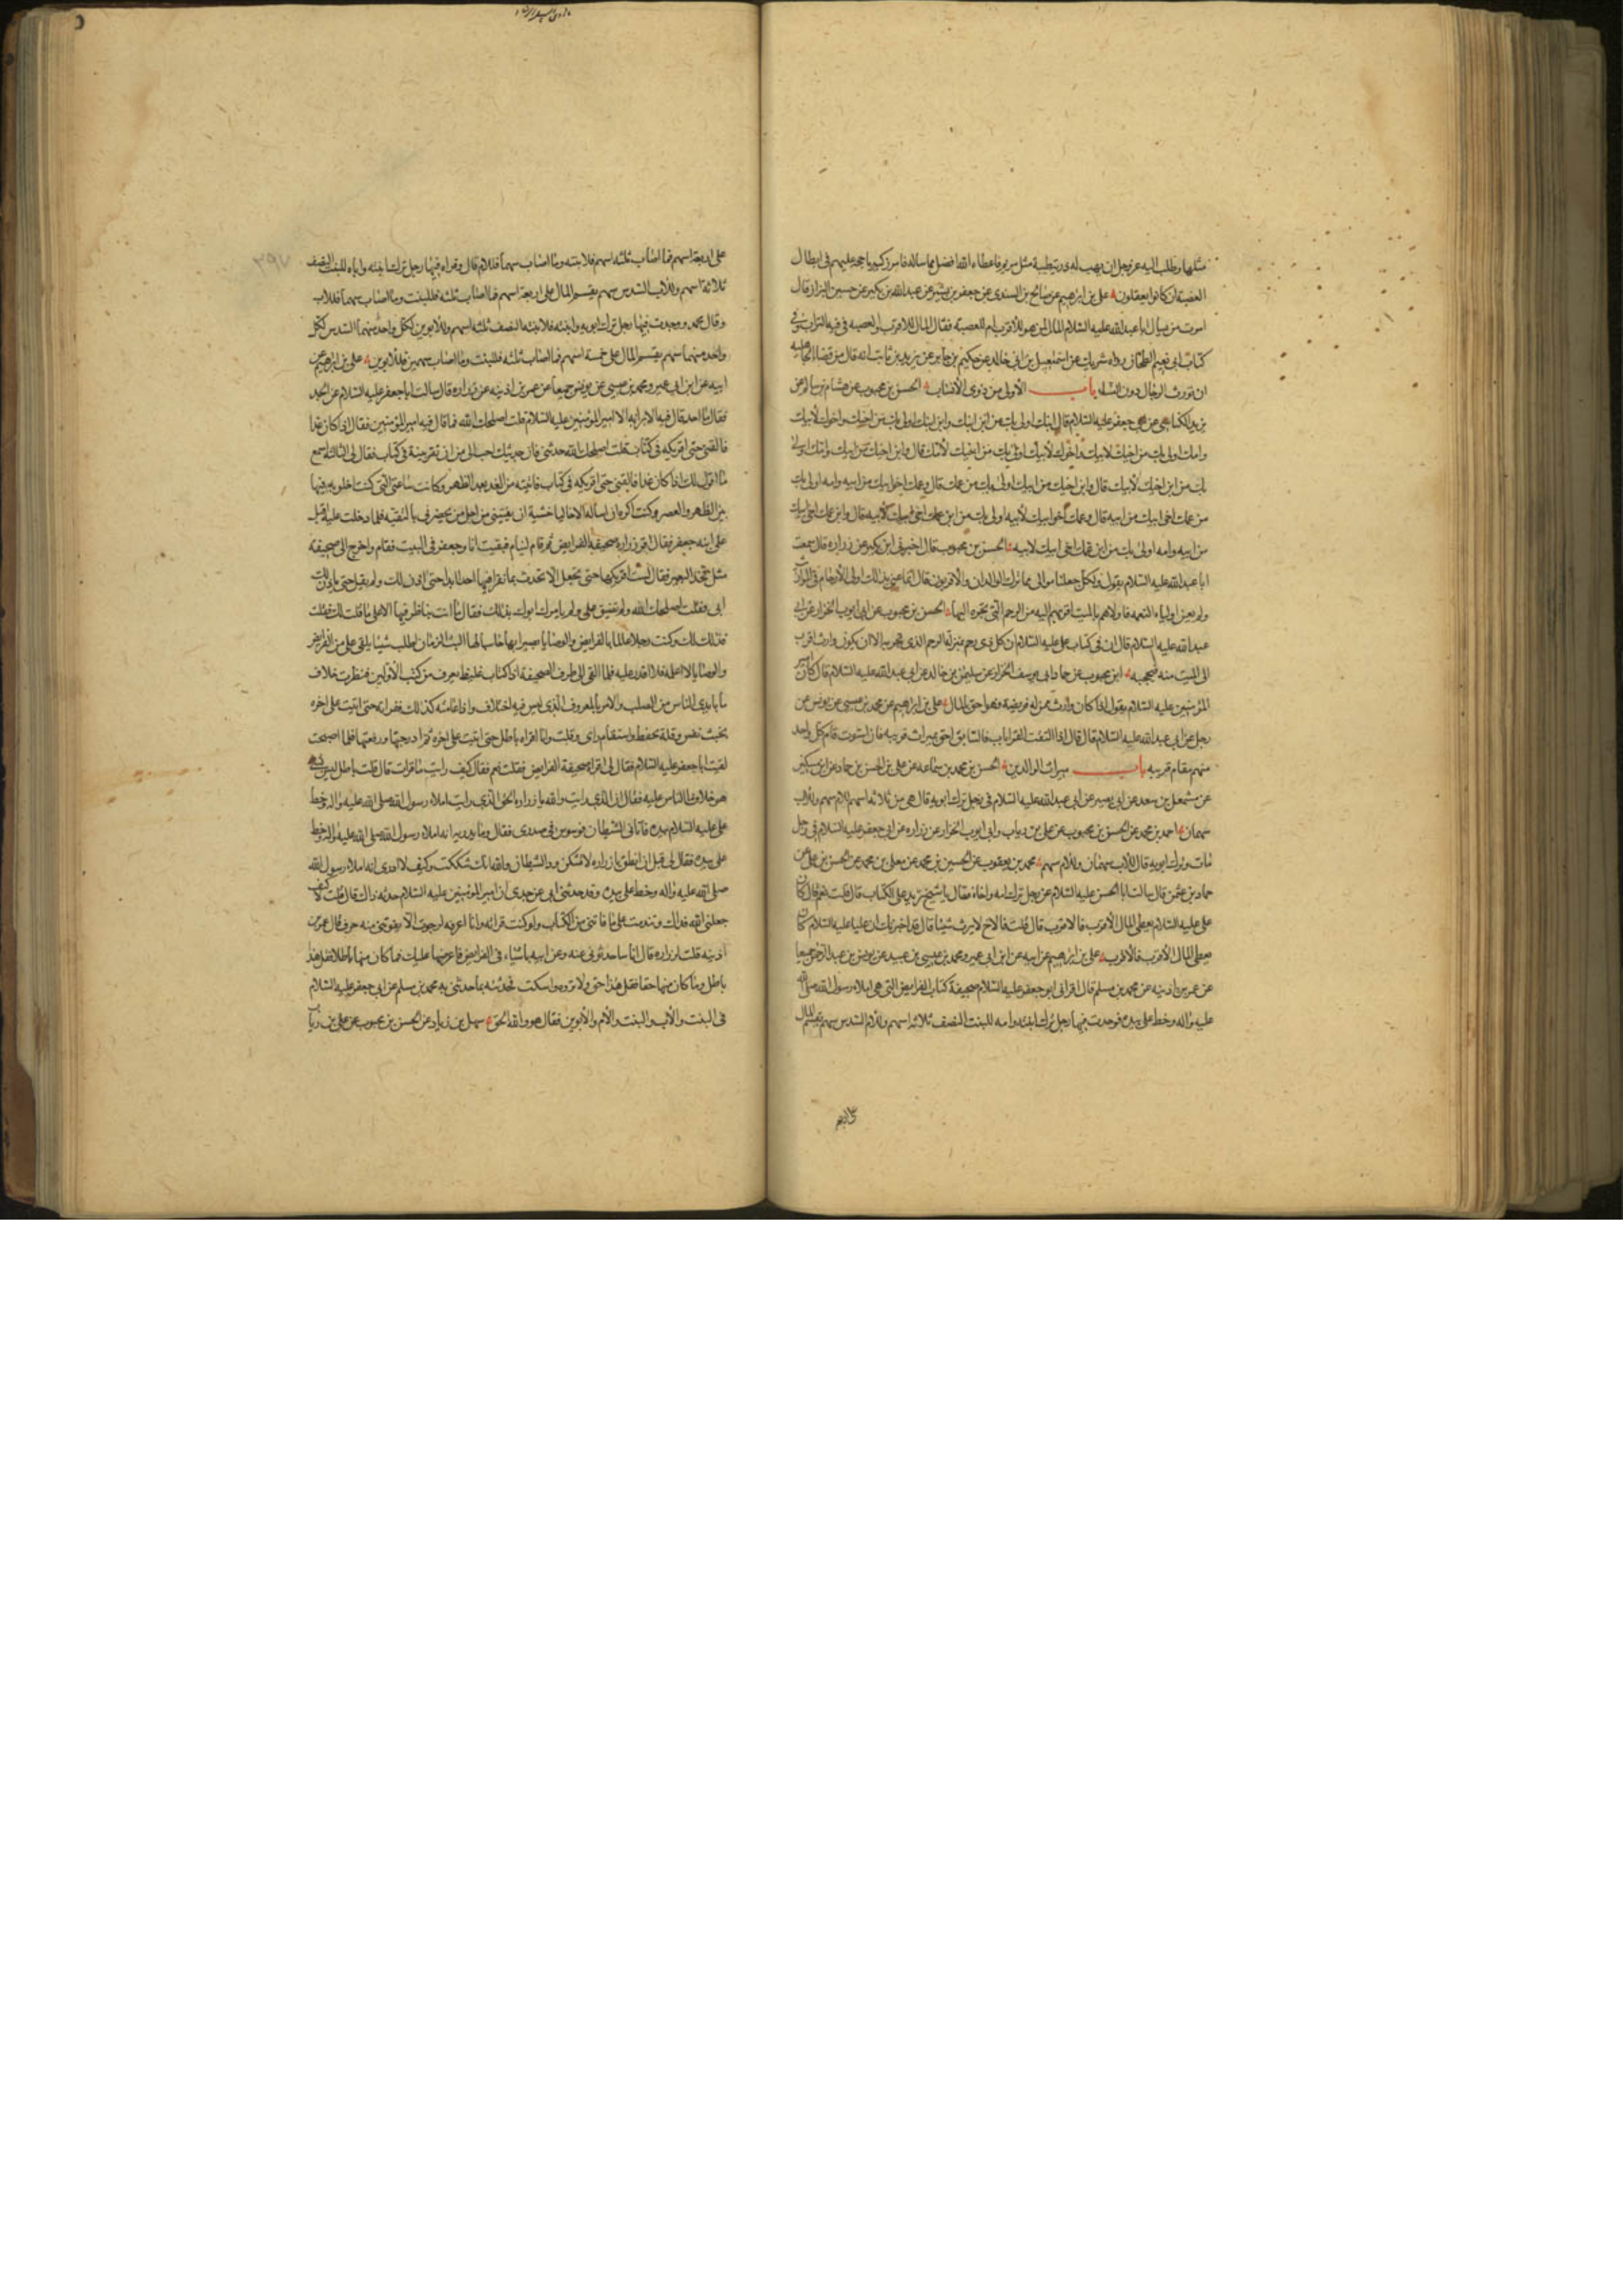 مثلها وطلب اليه عز وجل ان يهب له ذرية طيبة مثل مريم فاعطاه الله افضل مما ساله فامر زكريا حجة عليهم في ابطال
العصبة ان كانوا يعقلون علي بن ابراهيم عن صالح بن السندي عن جعفر بن بشير عن عبد الله بن بكير عن حسين البزاز قال
امرت من يسال ابا عبد الله عليه السلام المال لمن هو للاقرب ام للعصبة فقال المال للاقرب والعصبة في فيه التراب وفي
كتاب ابي نعيم الطحان رواه شريك عن اسمعيل بن ابي خالد عن حكيم بن جابر عن زيد بن ثابت انه قال من قضاء الجاهلية
ان تورث الرجال دون النساء باب الاولى من ذوي الانساب الحسن بن محبوب عن هشام بن سالم عن
يزيد الكناسي عن ابي جعفر عليه السلام قال ابنك اولى بك من ابن ابنك وابن ابنك اولى بك من اخيك واخوك لابيك
وامك اولى بك من اخيك لابيك واخوك لابيك اولى بك من اخيك لامك قال وابن اخيك من ابيك وامك اولى
بك من ابن اخيك لابيك قال وابن اخيك من ابيك اولى بك من عمك قال وعمك اخو ابيك من ابيه وامه اولى بك
من عمك اخي ابيك من ابيه قال وعمك اخو ابيك لابيه اولى بك من ابن عمك اخي ابيك لابيه قال وابن عمك اخي ابيك
من ابيه وامه اولى بك من ابن عمك اخي ابيك لابيه الحسن بن محبوب قال اخبرني ابن بكير عن زراره قال سمعت
ابا عبد الله عليه السلام يقول ولكل جعلنا موالي مما ترك الوالدان والاقربون قال انما عنى بذلك اولي الارحام في المواريث
ولم يعن اولياء النعمه فاولاهم بالميت اقربهم اليه من الرحم التي تجره اليها الحسن بن محبوب عن ابي ايوب الخزاز عن ابي
عبد الله عليه السلام قال ان في كتاب علي عليه السلام ان كل ذي رحم بمنزلة الرحم الذي يجر به الا ان يكون وارث اقرب
الى الميت منه فيحجبه ابن محبوب عن حماد ابي يوسف الخزاز عن سليمن بن خالد عن ابي عبد الله عليه السلام قال كان امير
المؤمنين عليه السلام يقول اذا كان وارث ممن له فريضة فهو احق بالمال علي بن ابراهيم عن محمد بن عيسى عن يونس عن
رجل عن ابي عبد الله عليه السلام قال قال اذا التفت القرابات فالسابق احق بميراث قريبه فان استوت قام كل واحد
منهم مقام قريبه باب ميراث الوالدين الحسن بن محمد بن سماعه عن علي بن الحسن بن حماد عن ابن سكين
عن مشمعل بن سعد عن ابي بصير عن ابي عبد الله عليه السلام في رجل ترك ابويه قال هي من ثلاثة اسهم للام سهم وللاب
سهمان احمد بن محمد عن الحسن بن محبوب عن علي بن رياب وابي ايوب الخزاز عن زراره عن ابي جعفر عليه السلام في رجل
مات وترك ابويه قال للاب سهمان وللام سهم محمد بن يعقوب عن الحسين بن محمد عن معلى بن محمد عن الحسن بن علي عن
حماد بن عثمن قال سالت ابا الحسن عليه السلام عن رجل ترك امه واخاه فقال يا شيخ تريد على الكتاب قال قلت نعم قال كان
علي عليه السلام يعطي المال الاقرب فالاقرب قال قلت فالاخ لا يرث شيئا قال قد اخبرتك ان عليا عليه السلام كان
يعطي المال الاقرب فالاقرب علي بن ابراهيم عن ابيه عن ابن ابي عمير ومحمد بن عيسى بن عبيد عن يونس بن عبد الرحمن جميعا
عن عمر بن اذينه عن محمد بن مسلم قال اقراني ابو جعفر عليه السلام صحيفة كتاب الفرايض التي هي املاء رسول الله صلى الله
عليه واله وخط علي بيده فوجدت فيها رجل ترك ابنته وامه للبنت النصف ثلاثة اسهم وللام السدس سهم يقسم المال
على اربعة
على اربعة اسهم فما اصاب ثلثة اسهم فلابنته وما اصاب سهما فللام قال وقراه فيها رجل ترك ابنته واباه للبنت النصف
ثلاثة اسهم وللاب السدس سهم يقسم المال على اربعة اسهم فما اصاب ثلثه فللبنت وما اصاب سهما فللاب
وقال محمد ووجدت فيها رجل ترك ابويه وابنته فلابنته النصف ثلثه اسهم وللابوين لكل واحد منهما السدس لكل
واحد منهما سهم يقسم المال على خمسة اسهم فما اصاب ثلثه فللبنت وما اصاب سهمين فللابوين علي بن ابراهيم عن
ابيه عن ابن ابي عمير ومحمد بن عيسى عن يونس جميعا عن عمر بن اذينه عن زراره قال سالت ابا جعفر عليه السلام عن الجد
فقال ما احد قال فيه الا برايه الا امير المؤمنين عليه السلام قلت اصلحك الله فما قال فيه امير المؤمنين فقال اذا كان غدا
فالقني حتى اقريكه في كتاب قلت اصلحك الله حدثني فان حديثك احب الي من ان تقرينه في كتاب فقال لي الثانية اسمع
ما اقول لك اذا كان غدا فالقني حتى اقريكه في كتاب فاتيته من الغد بعد الظهر وكانت ساعتي التي كنت اخلو به فيها
بين الظهر والعصر وكنت اكره ان اساله الا خاليا خشية ان يفتيني من اجل من يحضرني بالتقيه فلما دخلت عليه اقبل
على ابنه جعفر فقال اقر زراره صحيفة الفرايض ثم قام لينام فبقيت انا وجعفر في البيت فقام واخرج الي صحيفة
مثل فخذ البعير فقال لست اقريكها حتى تجعل الا تحدث بما تقرا فيها احدا ابدا حتى اذن لك ولم يقل حتى ياذن لك
ابي وقلت اصلحك الله ولم تضيق علي ولم يامرك ابوك بذلك فقال ما انت بناظر فيها الا على ما قلت لك فقلت
فذلك لك وكنت رجلا عالما بالفرايض والوصايا بصيرا بها حاسبا لها البث الزمان اطلب شيئا يلقى علي من الفرايض
والوصايا لا اعلمه فلا اقدر عليه فلما القى الي طرف الصحيفة اذا كتاب غليظ يعرف من كتب الاولين فنظرت خلاف
ما بايدي الناس من الصلب والامر بالمعروف الذي ليس فيه اختلاف واذا عامته كذلك فقراته حتى اتيت على اخره
بخبث نفس وقلة تحفظ واستقام راي وقلت وانا اقراه باطل حتى اتيت على اخره ثم ادرجتها ورفعتها فلما اصبحت
لقيت ابا جعفر عليه السلام فقال لي اقرات صحيفة الفرايض فقلت نعم فقال كيف رايت ما قرات قال قلت باطل ليس بشيء
هو خلاف ما الناس عليه فقال ان الذي رايت والله يا زراره الحق الذي رايت املاء رسول الله صلى الله عليه واله وخط
علي عليه السلام بيده فاتاني الشيطان فوسوس في صدري فقال وما يدريه انه املاء رسول الله صلى الله عليه واله وخط
علي بيده فقال لي قبل ان انطق يا زراره لا تشكن ود الشيطان والله انك شككت وكيف لا ادري انه املاء رسول الله
صلى الله عليه واله وخط علي بيده وقد حدثني ابي عن جدي ان امير المؤمنين عليه السلام حدثه ذاك قال قلت لا كيف
جعلني الله فداك وتندمت على ما فاتني من الكتاب ولو كنت قراته وانا اعرفه لرجوت الا يفوتني منه حرف قال عمر بن
اذينه قلت لزراره قال اناسا حدثوني عنه وعن ابيه باشياء في الفرايض فاعرضها عليك فما كان منها باطلا فقل هذا
باطل وما كان منها حقا فقل هذا حق ولا تروه واسكت فحدثته بما حدثني به محمد بن مسلم عن ابي جعفر عليه السلام
في البنت والاب والبنت والام والابوين فقال هو والله الحق سهل بن زياد عن الحسن بن محبوب عن علي بن رياب